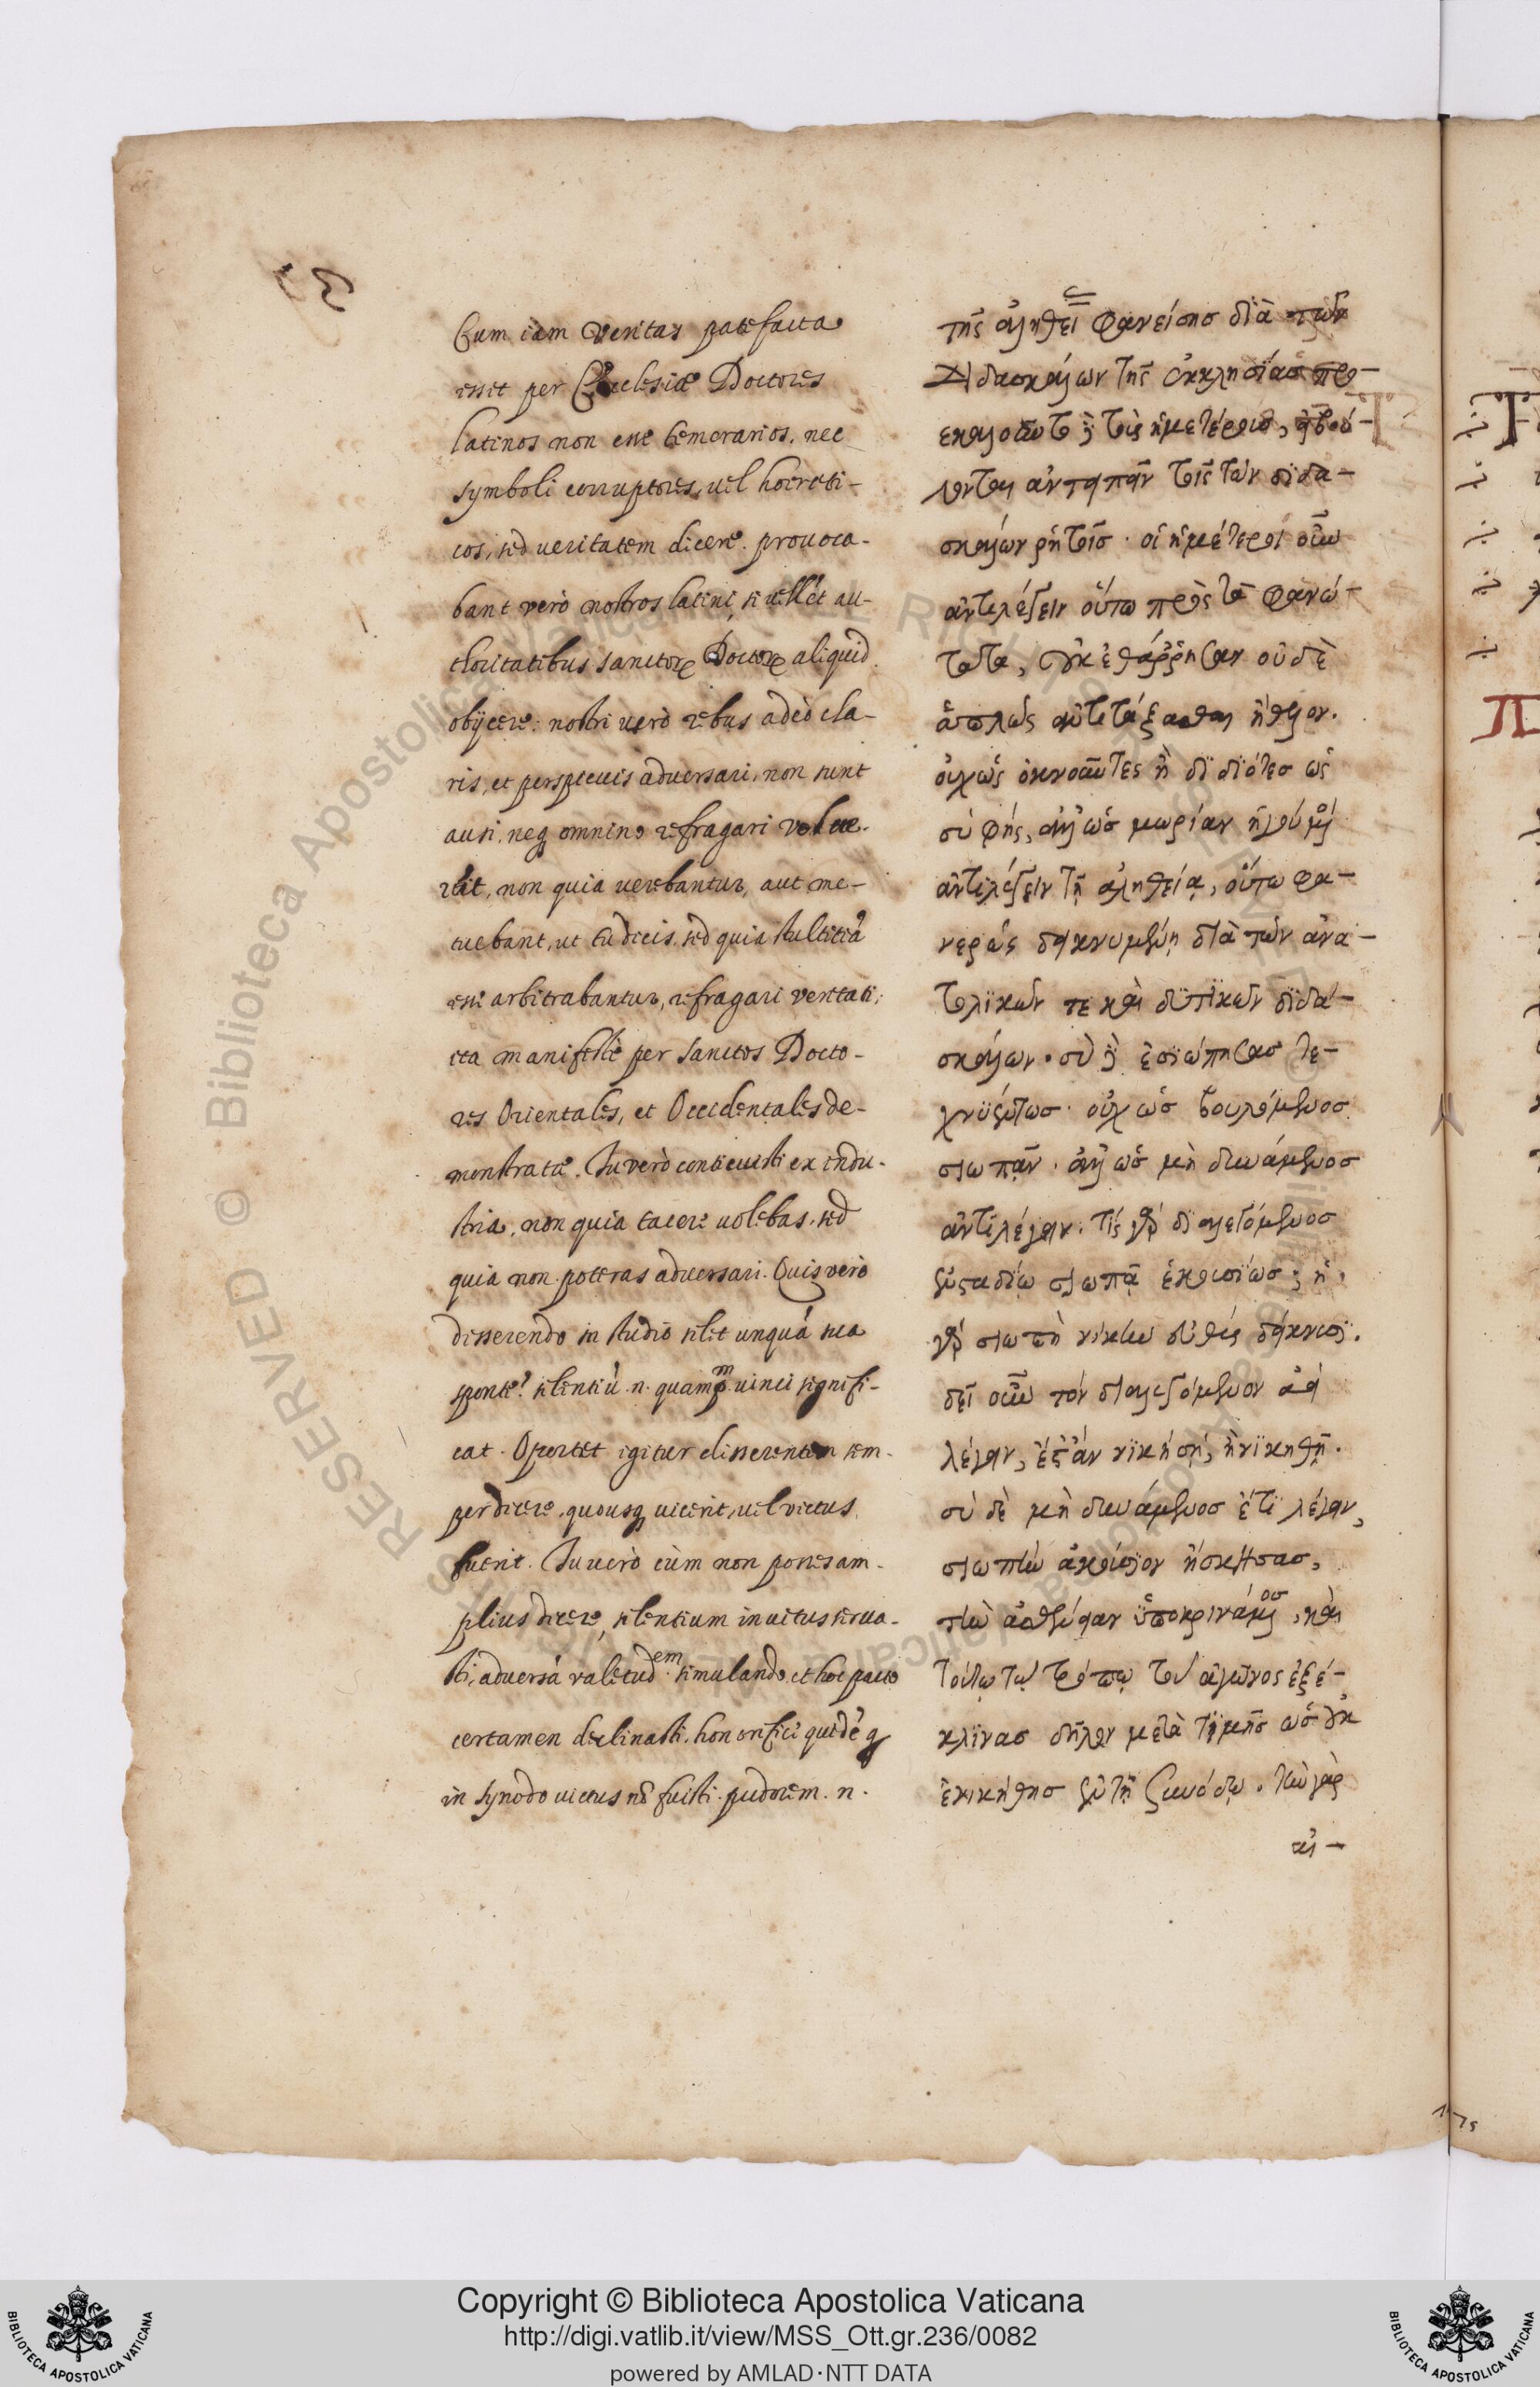 Cum iam veritas patefacta
esset per Ecclesiæ Doctores
latinos non esse temerarios, nec
symboli corruptores, vel hæreti-
cos, sed veritatem dicere. provoca-
bant verò nostros latini, si vellẽt au-
thoritatibus sanctorꝝ Doctorꝝ aliquid
obijcere: nostri verò rebus adeò cla-
ris, et perspicuis adversari, non sunt
ausi, neqꝫ omnino refragari volue-
rũt, non quia verebantur, aut me-
tuebant, ut tu dicis, sed quia stultitiã
esse arbitrabantur, refragari veritati,
ita manifestè per sanctos Docto-
res Orientales, et Occidentales de-
monstratæ. Tu verò conticuisti ex indu-
stria, non quia tacere volebas, sed
quia non poteras adversari. Quis verò
disserendo in studio silet unquã sua
sponte? silentiũ .n. quam vinci signifi-
cat. Oportet igitur disserentem sem-
per dicere, quousqꝫ vicerit, vel victus
fuerit. Tu verò cùm non posses am-
plius dicere, silentium invitus serva-
sti, adversã valetudem simulando, et hoc pacto
certamen declinasti, honorificè quidẽ q
in synodo victus nõ fuisti. pudorem .n.
τῆς ἀληθεί φανείσης διὰ τῶν
διδασκάλων τῆς ἐκκλησίας προ-
εκαλοῦντο δὲ τοὺς ἡμετέρους, εἰ βού-
λονται ἀντειπεῖν τοῖς τῶν διδα-
σκάλων ῥητοῖς. οἱ ἡμέτεροι οὖν
ἀντιλέξειν οὕτω πρὸς τὰ φανό-
τατα, οὐκ ἐθάῤῥησαν οὐδὲ
ἁπλῶς ἀντιτάξασθαι ἤθελον.
οὐχ ὡς ὀκνοῦντες ἢ δεδιότες ὡς
σὺ φῄς, ἀλλ' ὡς μωρίαν ἡγούμενοι
ἀντιλέξειν τῇ ἀληθείᾳ, οὕτω φα-
νερῶς δεικνυμένῃ διὰ τῶν ἀνα-
τολικῶν τε καὶ δυτικῶν διδα-
σκάλων. σὺ δὲ ἐσιώπησας τε-
χνηέντως. οὐχ ὡς βουλόμενος
σιωπᾶν. ἀλλ' ὡς μὴ δυνάμενος
ἀντιλέγειν. τίς γὰρ διαλεγόμενος
ἐν σταδίῳ σιωπᾷ ἑκουσίως; ἡ
γὰρ σιωπὴ νίκην εὐθὺς δείκνυσι.
δεῖ οὖν τὸν διαλεγόμενον ἀεὶ
λέγειν, ἕως ἂν νικήσῃ, ἢ νικηθῇ.
σὺ δὲ μὴ δυνάμενος ἔτι λέγειν,
σιωπὴν ἀκούσιον ἤσκησας,
τὴν ἀσθένειαν ὑποκρινάμενος, καὶ
τούτῳ τῷ τρόπῳ τοῦ ἀγῶνος ἐξέ-
κλινας δῆλον μετὰ τιμῆς ὡς οὐκ
ἐνικήθης ἐν τῇ συνόδῳ. τὴν γὰρ
αἰ-
Copyright © Biblioteca Apostolica Vaticana
http://digi.vatlib.it/view/MSS_Ott.gr.236/0082
powered by AMLAD·NTT DATA
BIBLIOTECA APOSTOLICA VATICANA
BIBLIOTECA APOSTOLICA VATICANA